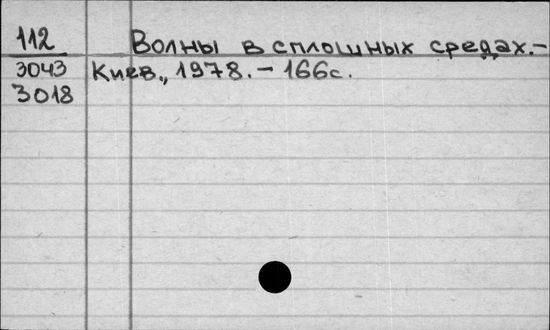 112 Волны в сплошных средах.-
3043 Киев, 1978. - 166с.
3018